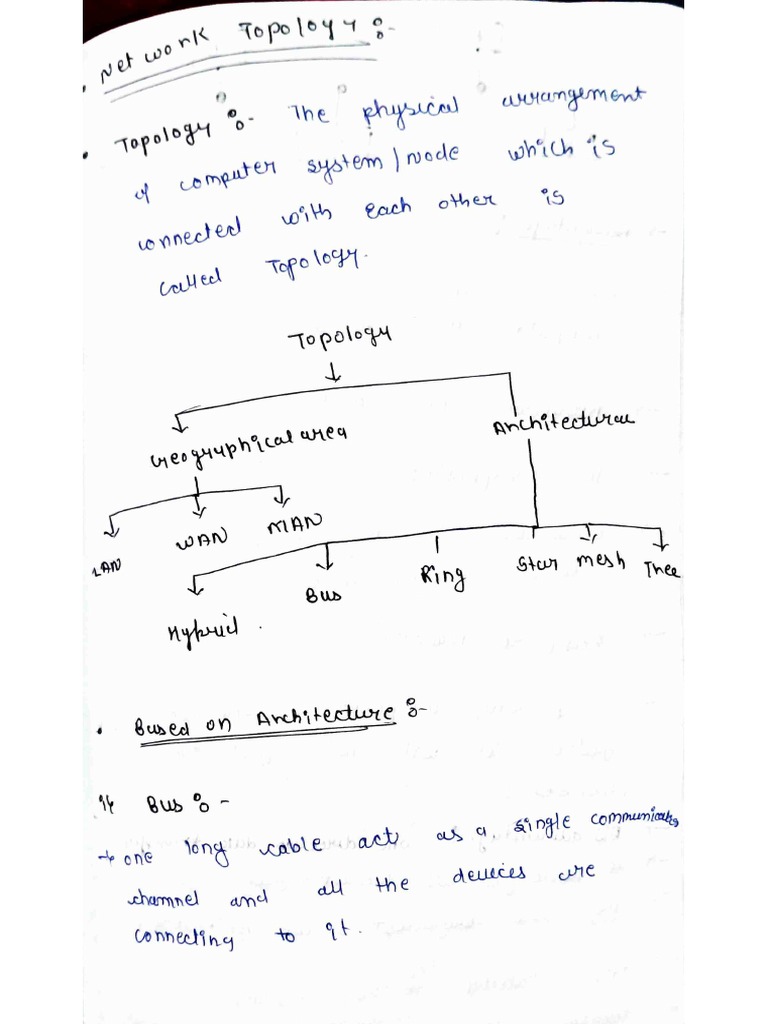 Network Topology :-
Topology :- The physical arrangement
of computer system / Node which is
connected with Each other is
called Topology.
Topology
Geographical area
Architectural
LAN
WAN
MAN
Hybrid .
Bus
Ring
Star
mesh
Tree
Based on Architecture :-
1) Bus :-
→ one long cable act as a single
channel and all the devices are
connecting to it.